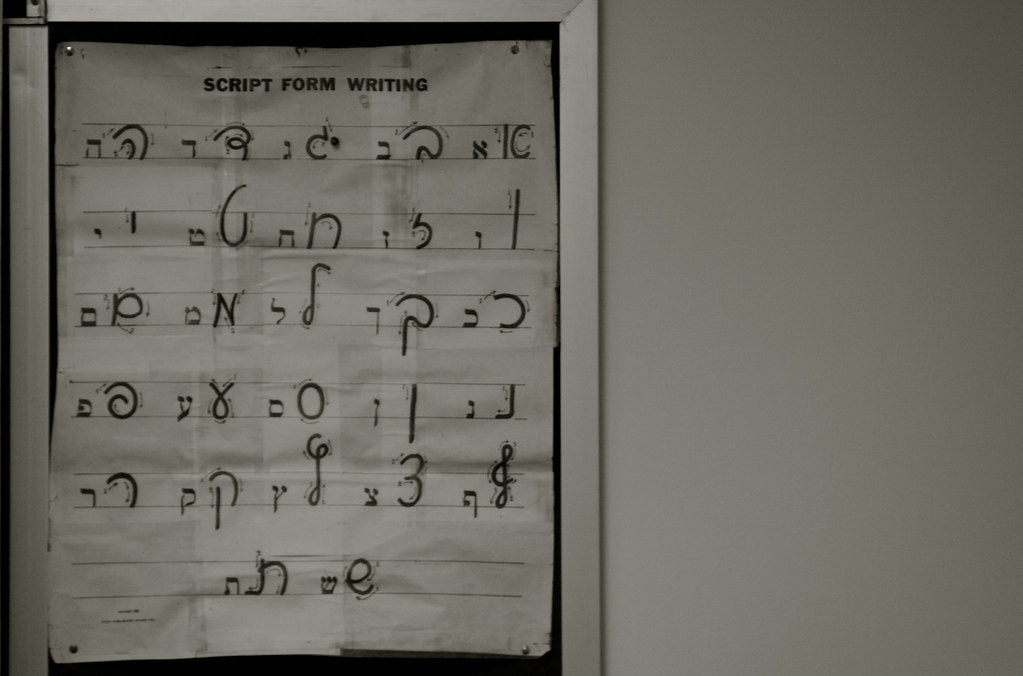 SCRIPT FORM WRITING
א א ב ב ג ג ד ד ה ה
ו ו ז ז ח ח ט ט י י
כ כ ך ך ל ל מ מ ם ם
נ נ ן ן ס ס ע ע פ פ
ף ף צ צ ץ ץ ק ק ר ר
ש ש ת ת